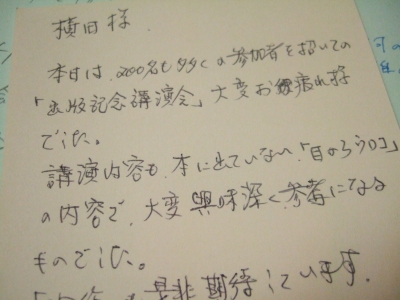 横田様
本日は、200名も多くの参加者を招いての
「出版記念講演会」大変お疲れ様
でした。
講演内容も、本に出ていない、「目からウロコ」
の内容で、大変興味深く、参考になる
ものでした。
是非期待しています。